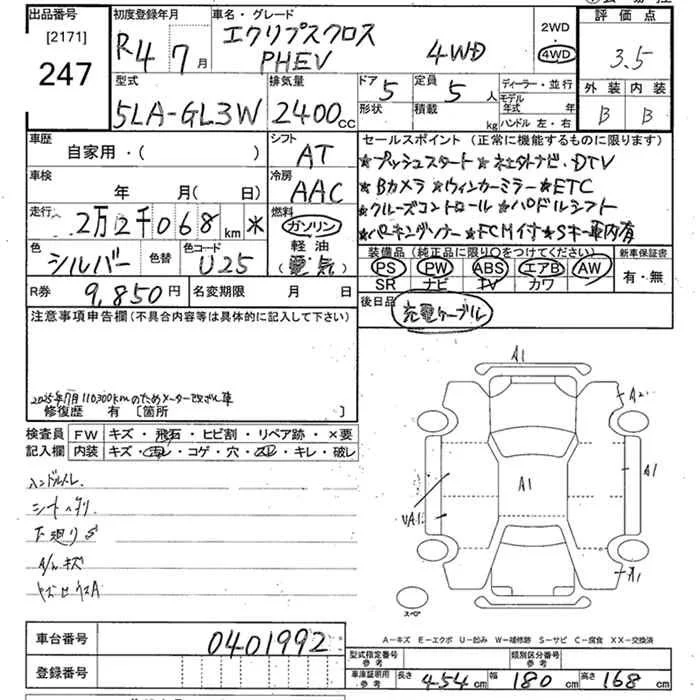 出品番号 初度登録年月 車名・グレード 2WD 評価点
[2171] 247 R4 7月 エクリプスクロス PHEV 4WD 4WD 3.5
型式 排気量 ドア 5 定員 5人 ディーラー・並行 外装 内装
5LA-GL3W 2400cc 形状 積載 kg モデル年式 年 ハンドル 左・右 B B
車歴 シフト セールスポイント(正常に機能するものに限ります)
自家用・( ) AT ★プッシュスタート★純正ナビ・DTV
車検 冷房 ★Bカメラ★ウィンカーミラー★ETC
年 月( 日) AAC ★クルーズコントロール★パドルシフト
走行 燃料 ★パーキングソナー★FCM付★Sキー車内有
2万2千068km ※ ガソリン
色 色替 色コード 軽油 装備品(純正品に限り○をつけてください) 新車保証書
シルバー U25 (電気) PS PW ABS エアB AW 有・無
SR ナビ TV カワ
R券 9,850円 名変期限 月 日 後日品 充電ケーブル
注意事項申告欄(不具合内容等は具体的に記入して下さい)
2025年7月110,300kmのためメーター改ざん車
修復歴 有 [箇所 ]
検査員 FW キズ・飛石・ヒビ割・リペア跡・×要
記入欄 内装 キズ・汚レ・コゲ・穴・スレ・キレ・破レ
ハンドルスレ
下廻りS
A/Wキズ
A1
A2
A1
A1
UA1
A1
スペア
A-キズ E-エクボ U-凹み W-補修跡 S-サビ C-腐食 XX-交換済
車台番号 0401992
登録番号
型式指定番号 参考 類別区分番号 参考
車庫証明用 参考 長さ 454cm 幅 180cm 高さ 168cm